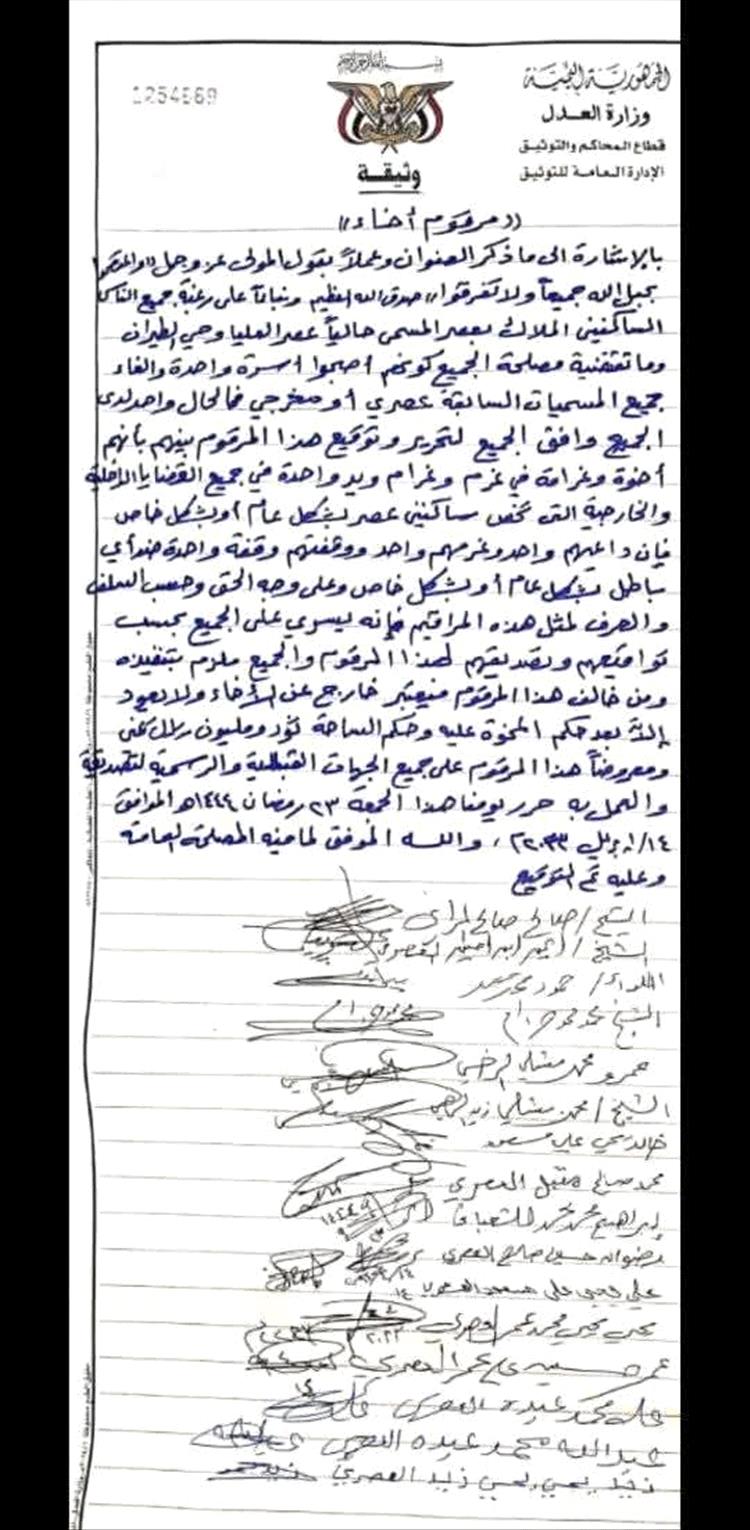 بسم الله الرحمن الرحيم
الجمهورية اليمنية
وزارة العدل
قطاع المحاكم والتوثيق
الإدارة العامة للتوثيق
1254569
وثيقة
((مرقوم أخاء))
بالإشارة الى ما ذكر العنوان وعملاً بقول المولى عز وجل ((واعتصموا
بحبل الله جميعاً ولا تفرقوا)) صدق الله العظيم وبناءً على رغبة جميع
الساكنين الملاك بعصر المسمى حالياً عصر العليا وحي الطيران
وما تقتضية مصلحة الجميع كونهم أصبحوا أسرة واحدة والغاء
جميع المسميات السابقة عصري أو مخرجي فالحال واحد لدى
الجميع وافق الجميع لتحرير وتوقيع هذا المرقوم بينهم بأنهم
أخوة وغرامة في غرم وغرام ويد واحدة في جميع القضايا الداخلية
والخارجية التي تخص ساكنين عصر بشكل عام أو بشكل خاص
فإن داعيهم واحد وغرمهم واحد ووقفتهم وقفة واحدة ضد أي
باطل بشكل عام أو بشكل خاص وعلى وجه الحق وحسب السلف
والعرف لمثل هذه المراقيم فإنه يسري على الجميع بحسب
تواقيعهم وتصديقهم لهذا المرقوم والجميع ملزم بتنفيذه
ومن خالف هذا المرقوم فيعتبر خارج عن الأخاء ولا يعود
إلا بعد حكم المخوة عليه وحكم الساحة ثور ومليون ريال
ومعروضاً هذا المرقوم على جميع الجهات القبلية والرسمية لتصديقة
والعمل به حرر يومنا هذا الجمعة ٢٣ رمضان ١٤٤٤هـ الموافق
١٤/ابريل ٢٠٢٣م، والله الموفق لما فيه المصلحة العامة
وعليه تم التوقيع
الشيخ/صالح صالح
الشيخ/
اللواء/ حمود محمد
الشيخ محمد
عمرو محمد
الشيخ/محمد
خالد يحيى علي مسعد
محمد صالح مقبل العصري
إبراهيم محمد محمد
رضوان حسين صالح العصري
علي يحيى علي مسعد العصري
يحيى يحيى محمد عمر العصري
عمر حسين عمر العصري
محمد عبده العصري
عبدالله محمد عبده العصري
زيد يحيى يحيى زيد العصري